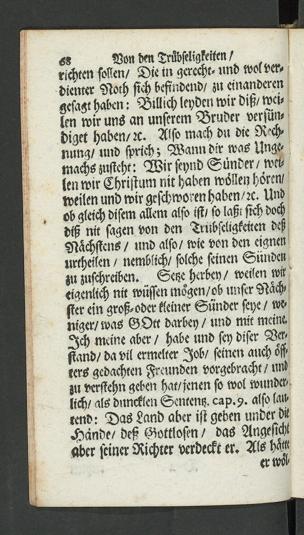 68 Von den Trübseligkeiten /
richten sollen / Die in gerecht- und wol ver-
dienter Noth sich befindend / zu einanderen
gesagt haben: Billich leyden wir diß / wei-
len wir uns an unserem Bruder versün-
diget haben / ꝛc. Also mach du die Rech-
nung / und sprich; Wann dir was Unge-
machs zusteht: Wir seynd Sünder / wei-
len wir Christum nit haben wöllen hören /
weilen und wir geschworen haben / ꝛc. Und
ob gleich disem allem also ist / so laßt sich doch
diß nit sagen von den Trübseligkeiten deß
Nächstens / und also / wie von den eignen
urtheilen / nemblich / solche seinen Sünden
zu zuschreiben. Setze herbey / weilen wir
eigenlich nit wüssen mögen / ob unser Näch-
ster ein groß- oder kleiner Sünder seye / we-
niger / was GOtt darbey / und mit meine.
Ich meine aber / habe und sey diser Ver-
stand / da vil ermelter Job / seinen auch öff-
ters gedachten Freunden vorgebracht / und
zu verstehn geben hat / jenen so wol wunder-
lich / als duncklen Sententz. cap. 9. also lau-
tend: Das Land aber ist geben under die
Hände / deß Gottlosen / das Angesicht
aber seiner Richter verdeckt er. Als hätte
er wöl-